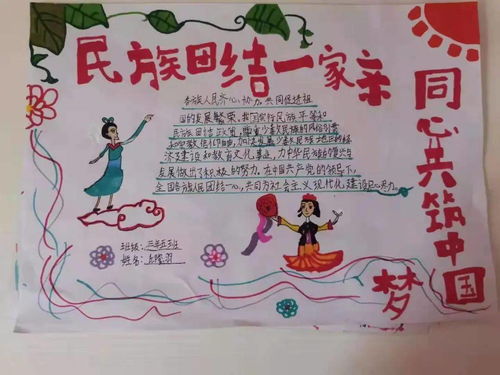 民族团结一家亲
各族人民齐心协力,共同促进祖
国的发展繁荣,我国实行民族平等和
民族团结政策,尊重少数民族的风俗习惯
和宗教信仰自由,加速发展少数民族地区的经
济建设和教育文化事业,为中华民族的复兴与
发展做出了积极的努力,在中国共产党的领导下,
全国各族人民团结一心,共同为社会主义现代化建设
班级:三年五班
姓名:
同心共筑中国
梦